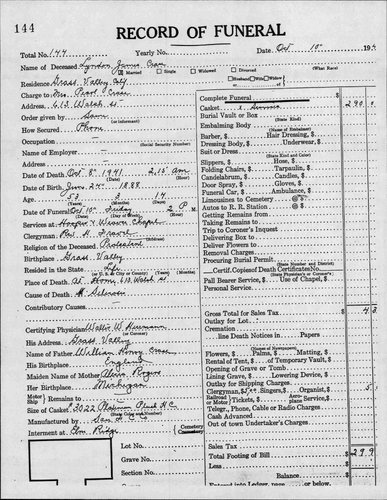 144
RECORD OF FUNERAL
Total No. 144 Yearly No. Date Oct 10 194
Name of Deceased Lyndon James Crase
Married Single Widowed Divorced (What Race)
Residence Grass Valley, Calif Husband Wife Widow of
Charge to Mrs. Pearl Crase
Address 613 Walsh st
Order given by Same (or informant)
How Secured Phone
Occupation (Social Security Number)
Name of Employer
Address
Date of Death Oct 8 1941 2.15 am
Date of Birth June 24 1888
Age 53 3 14
(Years) (Months) (Days)
Date of Funeral Oct 10 Friday 2 P.M.
Services at Hooper & Weaver Chapel
Clergyman
Religion of the Deceased Protestant
Birthplace Grass Valley
Resided in the State Life
(or U. S. or City or County) (Years or Months)
Place of Death At Home, 613 Walsh st
Cause of Death
Contributory Causes
Certifying Physician
His Address Grass Valley
Name of Father William Henry Crase
His Birthplace England
Maiden Name of Mother Rogers
Her Birthplace Michigan
Motor Ship Remains to
Size of Casket
Manufactured by
Interment at Elm Ridge Cemetery Crematory
Lot No.
Grave No.
Section No.
Complete Funeral
Casket & Service 290 0
Burial Vault or Box (State Kind)
Embalming Body (Name of Embalmer)
Barber, Hair Dressing,
Dressing Body, Underwear,
Suit or Dress (State Kind and Color)
Slippers, Hose,
Folding Chairs, Tarpaulin,
Candelabrum, Candles,
Door Spray, Gloves,
Funeral Car, Ambulance,
Limousines to Cemetery
Autos to R. R. Station
Getting Remains from
Taking Remains to
Trip to Coroner's Inquest
Delivering Box to
Deliver Flowers to
Removal Charges
Procuring Burial Permit (State Number and District)
Certif. Copies of Death Certificates No. (State Physician's or Coroner's)
Pall Bearer Service, Use of Chapel,
Personal Service,
Gross Total for Sales Tax
Outlay for Lot
Cremation
line Death Notices in Papers
(Names of Newspapers)
Flowers, Palms, Matting,
Rental of Tent, of Temporary Vault,
Opening of Grave or Tomb
Lining Grave, Lowering Device,
Outlay for Shipping Charges
Clergyman, Singers, Organist, 5
Railroad Motor Tickets, Aero-Service,
Telegr., Phone, Cable or Radio Charges
Cash Advanced
Out of town Undertaker's Charges
Sales Tax
Total Footing of Bill 299
Less
Balance
Entered into Ledger, page or below.